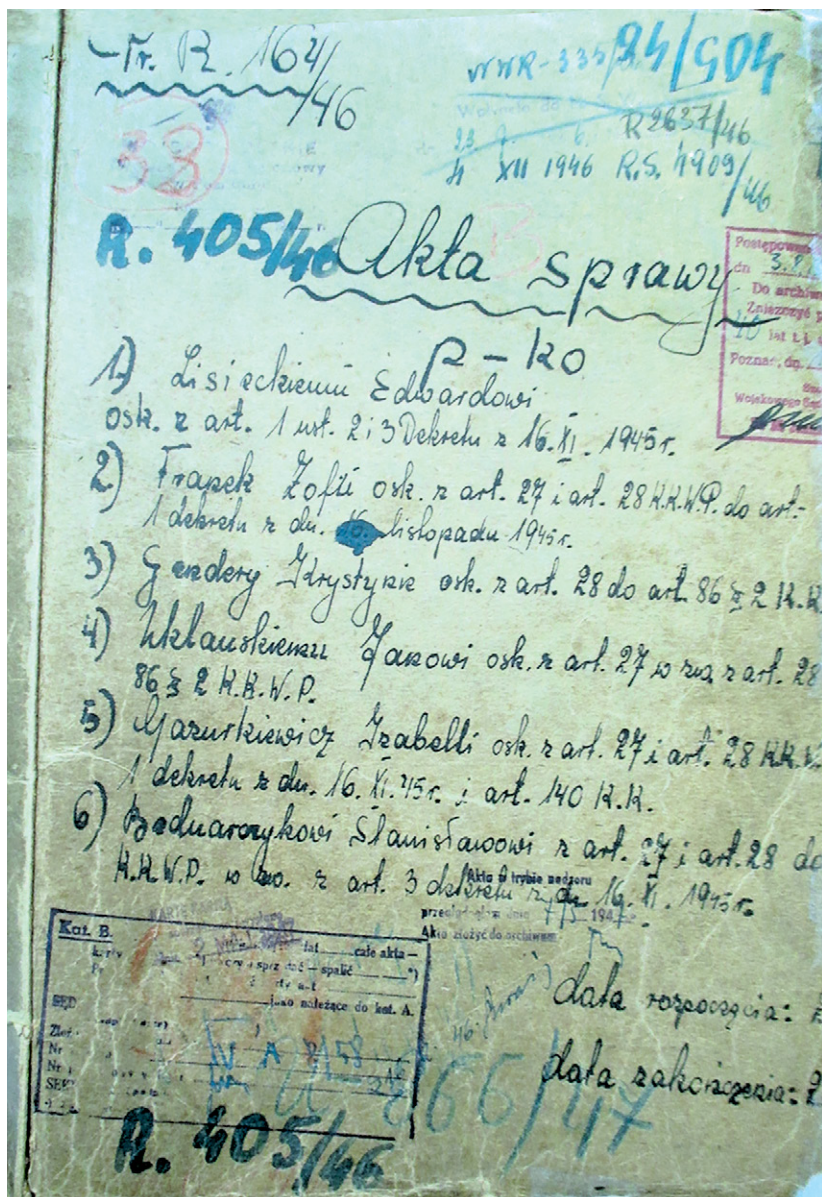 Tr. R. 164/46
WWR-335/
24/904
38
R 2637/46
4 XII 1946 R.S. 4909/46
R. 405/46
Akta sprawy
p-ko
Postępowan
dn 3.8.
Do archiwu
Zniszczyć p
Poznań, dn.
Wojskowego Są
1) Lisieckiemu Edwardowi
osk. z art. 1 ust. 2 i 3 Dekretu z 16.XI. 1945r.
2) Franek Zofii osk. z art. 27 i art. 28 K.K.W.P. do art.
1 dekretu z dn. 16. listopadu 1945r.
3) Gendery Krystynie osk. z art. 28 do art. 86 § 2 K.K.
4) Janowi osk. z art. 27 w zw. z art. 28
86 § 2 K.K.W.P.
5) Mazurkiewicz Izabelli osk. z art. 27 i art. 28 K.K.W.
1 dekretu z dn. 16. XI. 45r. i art. 140 K.K.
6) Bednarczykowi Stanisławowi z art. 27 i art. 28 do
K.K.W.P. w zw. z art. 3 dekretu z dn. 16. XI. 1945r.
Akta w trybie nadzoru
przeglądałem dnia 194
Akta złożyć do archiwum
Kat. B.
lat całe akta
spalić
jako należące do kat. A.
data rozpoczęcia:
data zakończenia:
866/47
R. 405/46